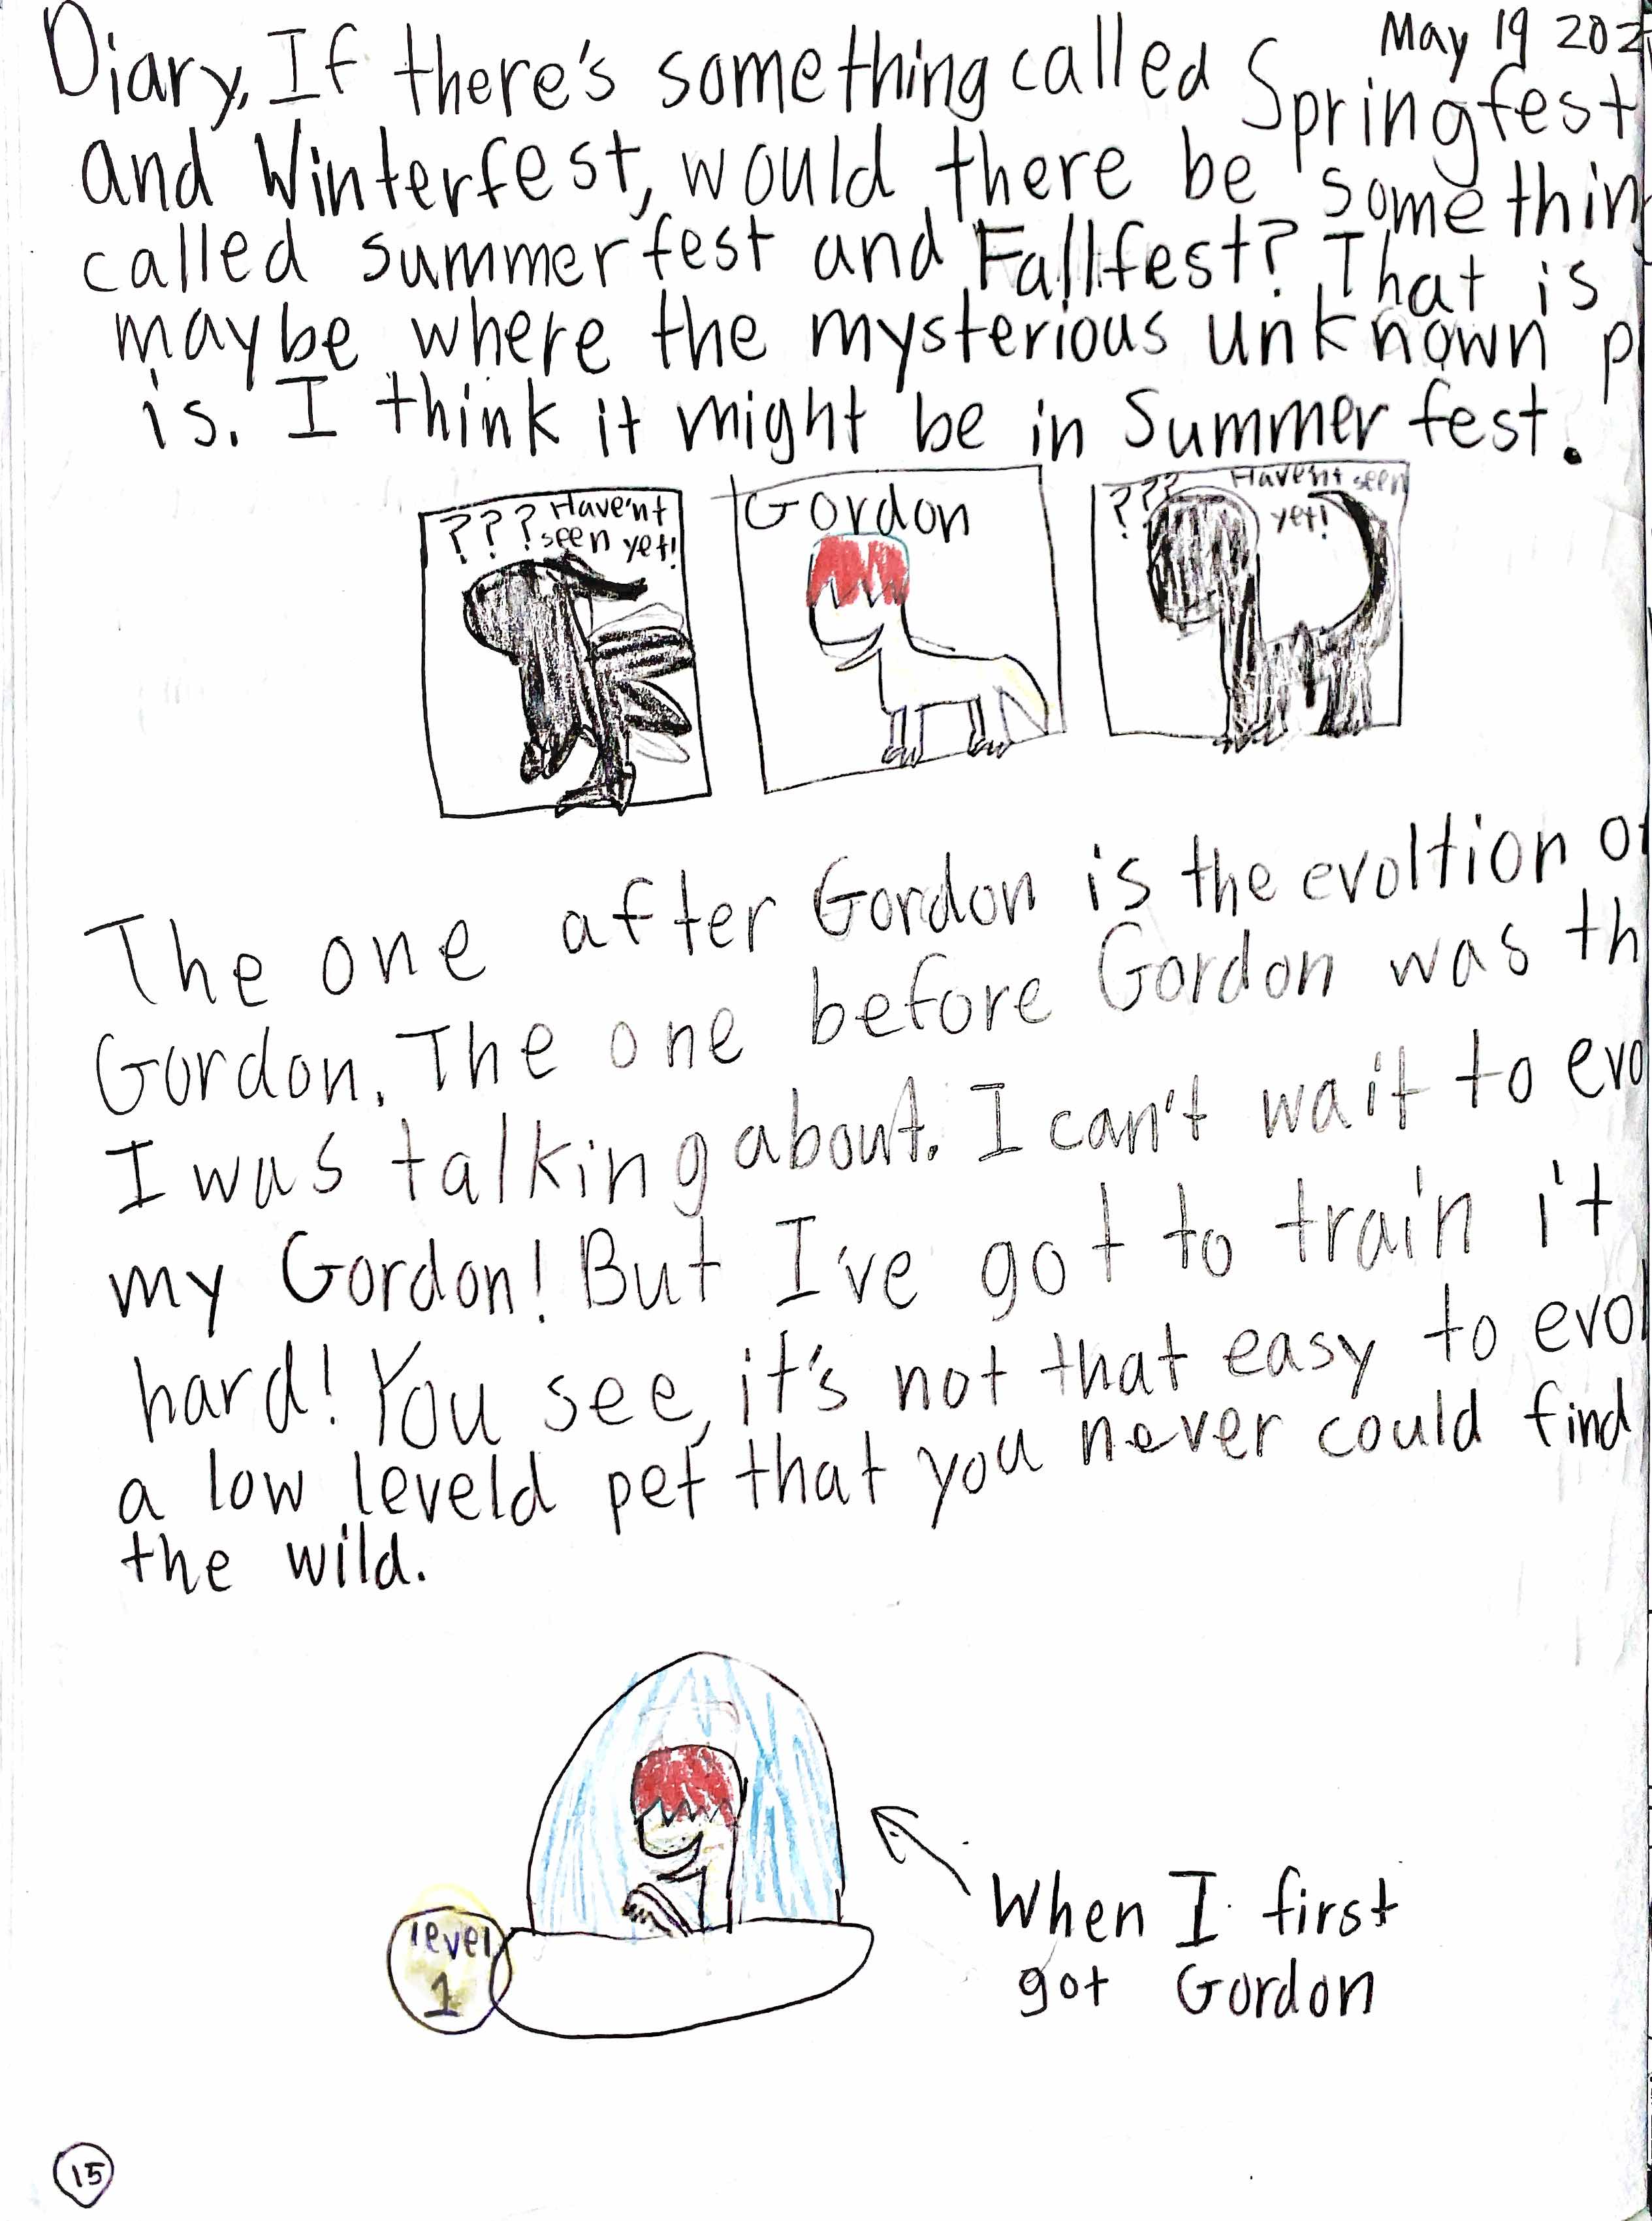 May 19 202
Diary, If there's something called Springfest
and Winterfest, would there be somethin
called summerfest and Fallfest? That is
maybe where the mysterious unknown p
is. I think it might be in Summerfest.
??? Have'nt
seen yet!
Gordon
??? Have'nt seen
yet!
The one after Gordon is the evoltion of
Gordon. The one before Gordon was th
I was talking about. I can't wait to evo
my Gordon! But I've got to train it
hard! You see, it's not that easy to evol
a low leveld pet that you never could find
the wild.
level
1
When I first
got Gordon
15